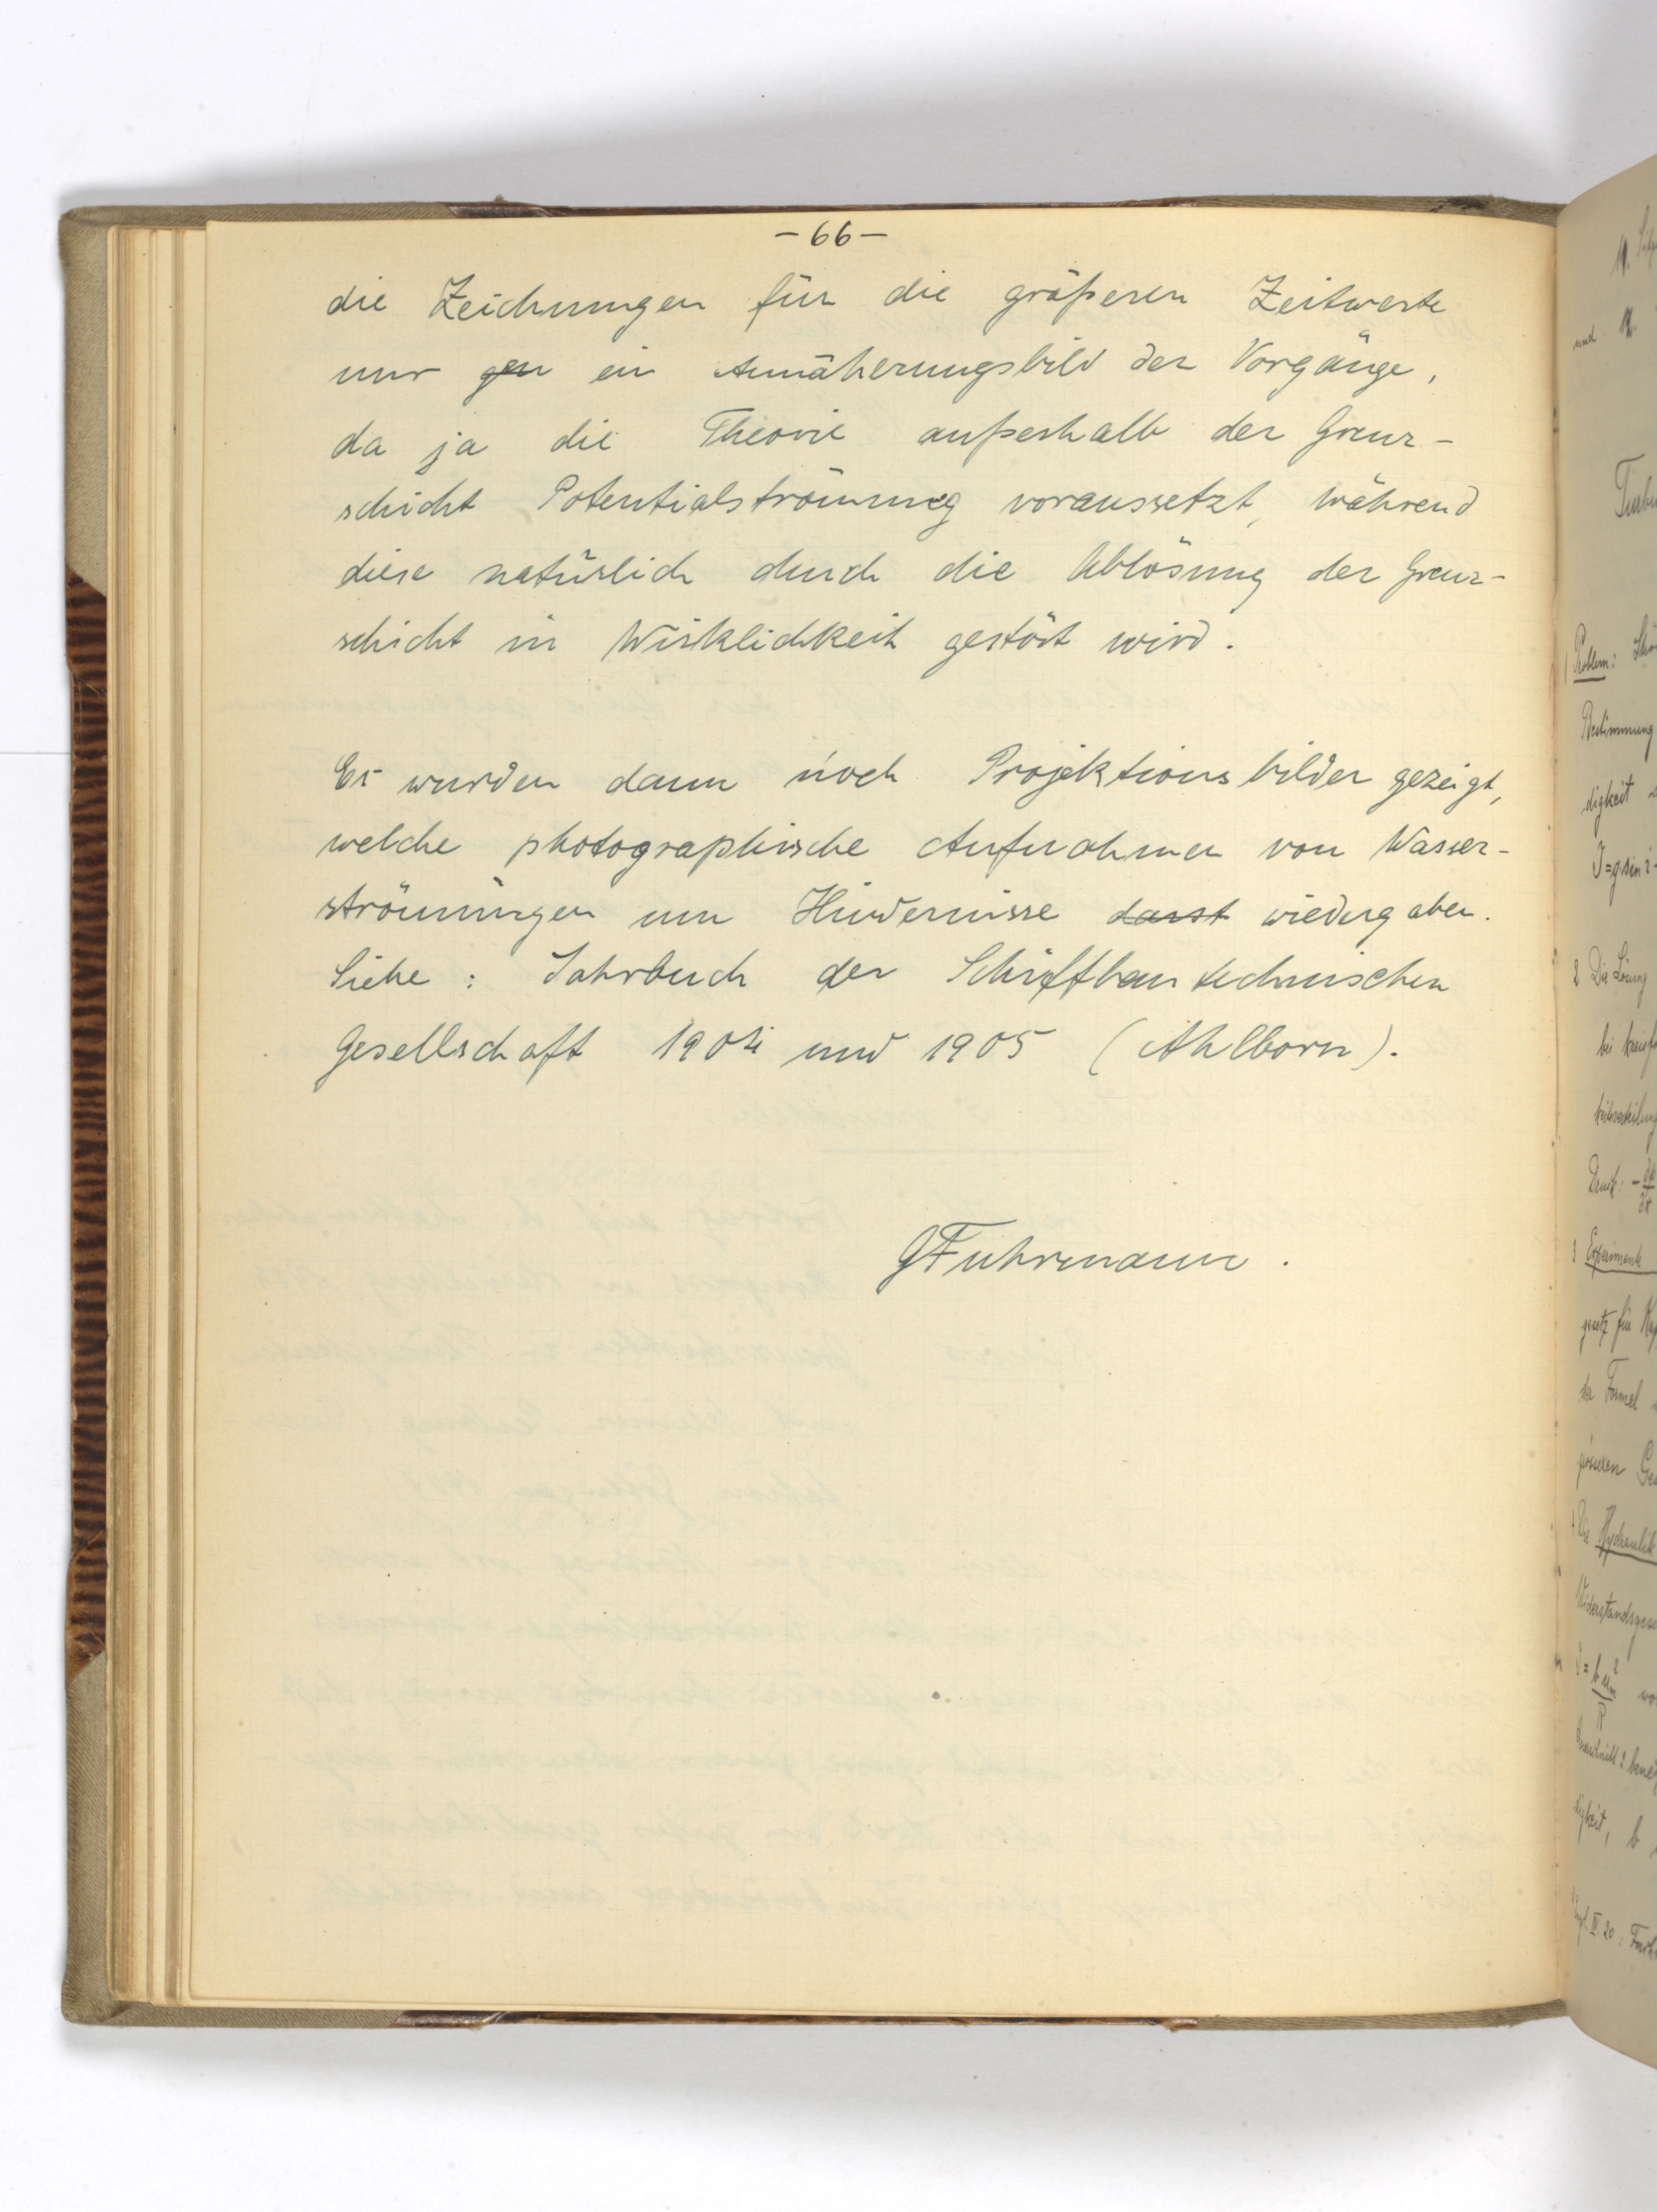 - 66 -
die Zeichnungen für die größeren Zeitwerte
nur gen ein Annäherungsbild der Vorgänge,
da ja die Theorie außerhalb der Grenz-
schicht Potentialströmung voraussetzt, während
diese natürlich durch die Ablösung der Grenz-
schicht in Wirklichkeit gestört wird.
Es wurden dann noch Projektionsbilder gezeigt,
welche photographische Aufnahmen von Wasser-
strömungen um Hindernisse darst wiedergaben.
Siehe: Jahrbuch der Schiffbautechnischen
Gesellschaft 1904 und 1905 (Ahlborn).
GFuhrmann.
und 12.
1 Problem:
Bestimmung
digkeit
J=g·sin i
2 Die Lösung
bei
Druck:
3 Experimente
gesetz für
der Formel
grösseren
4 Die Hydraulik
digkeit, b